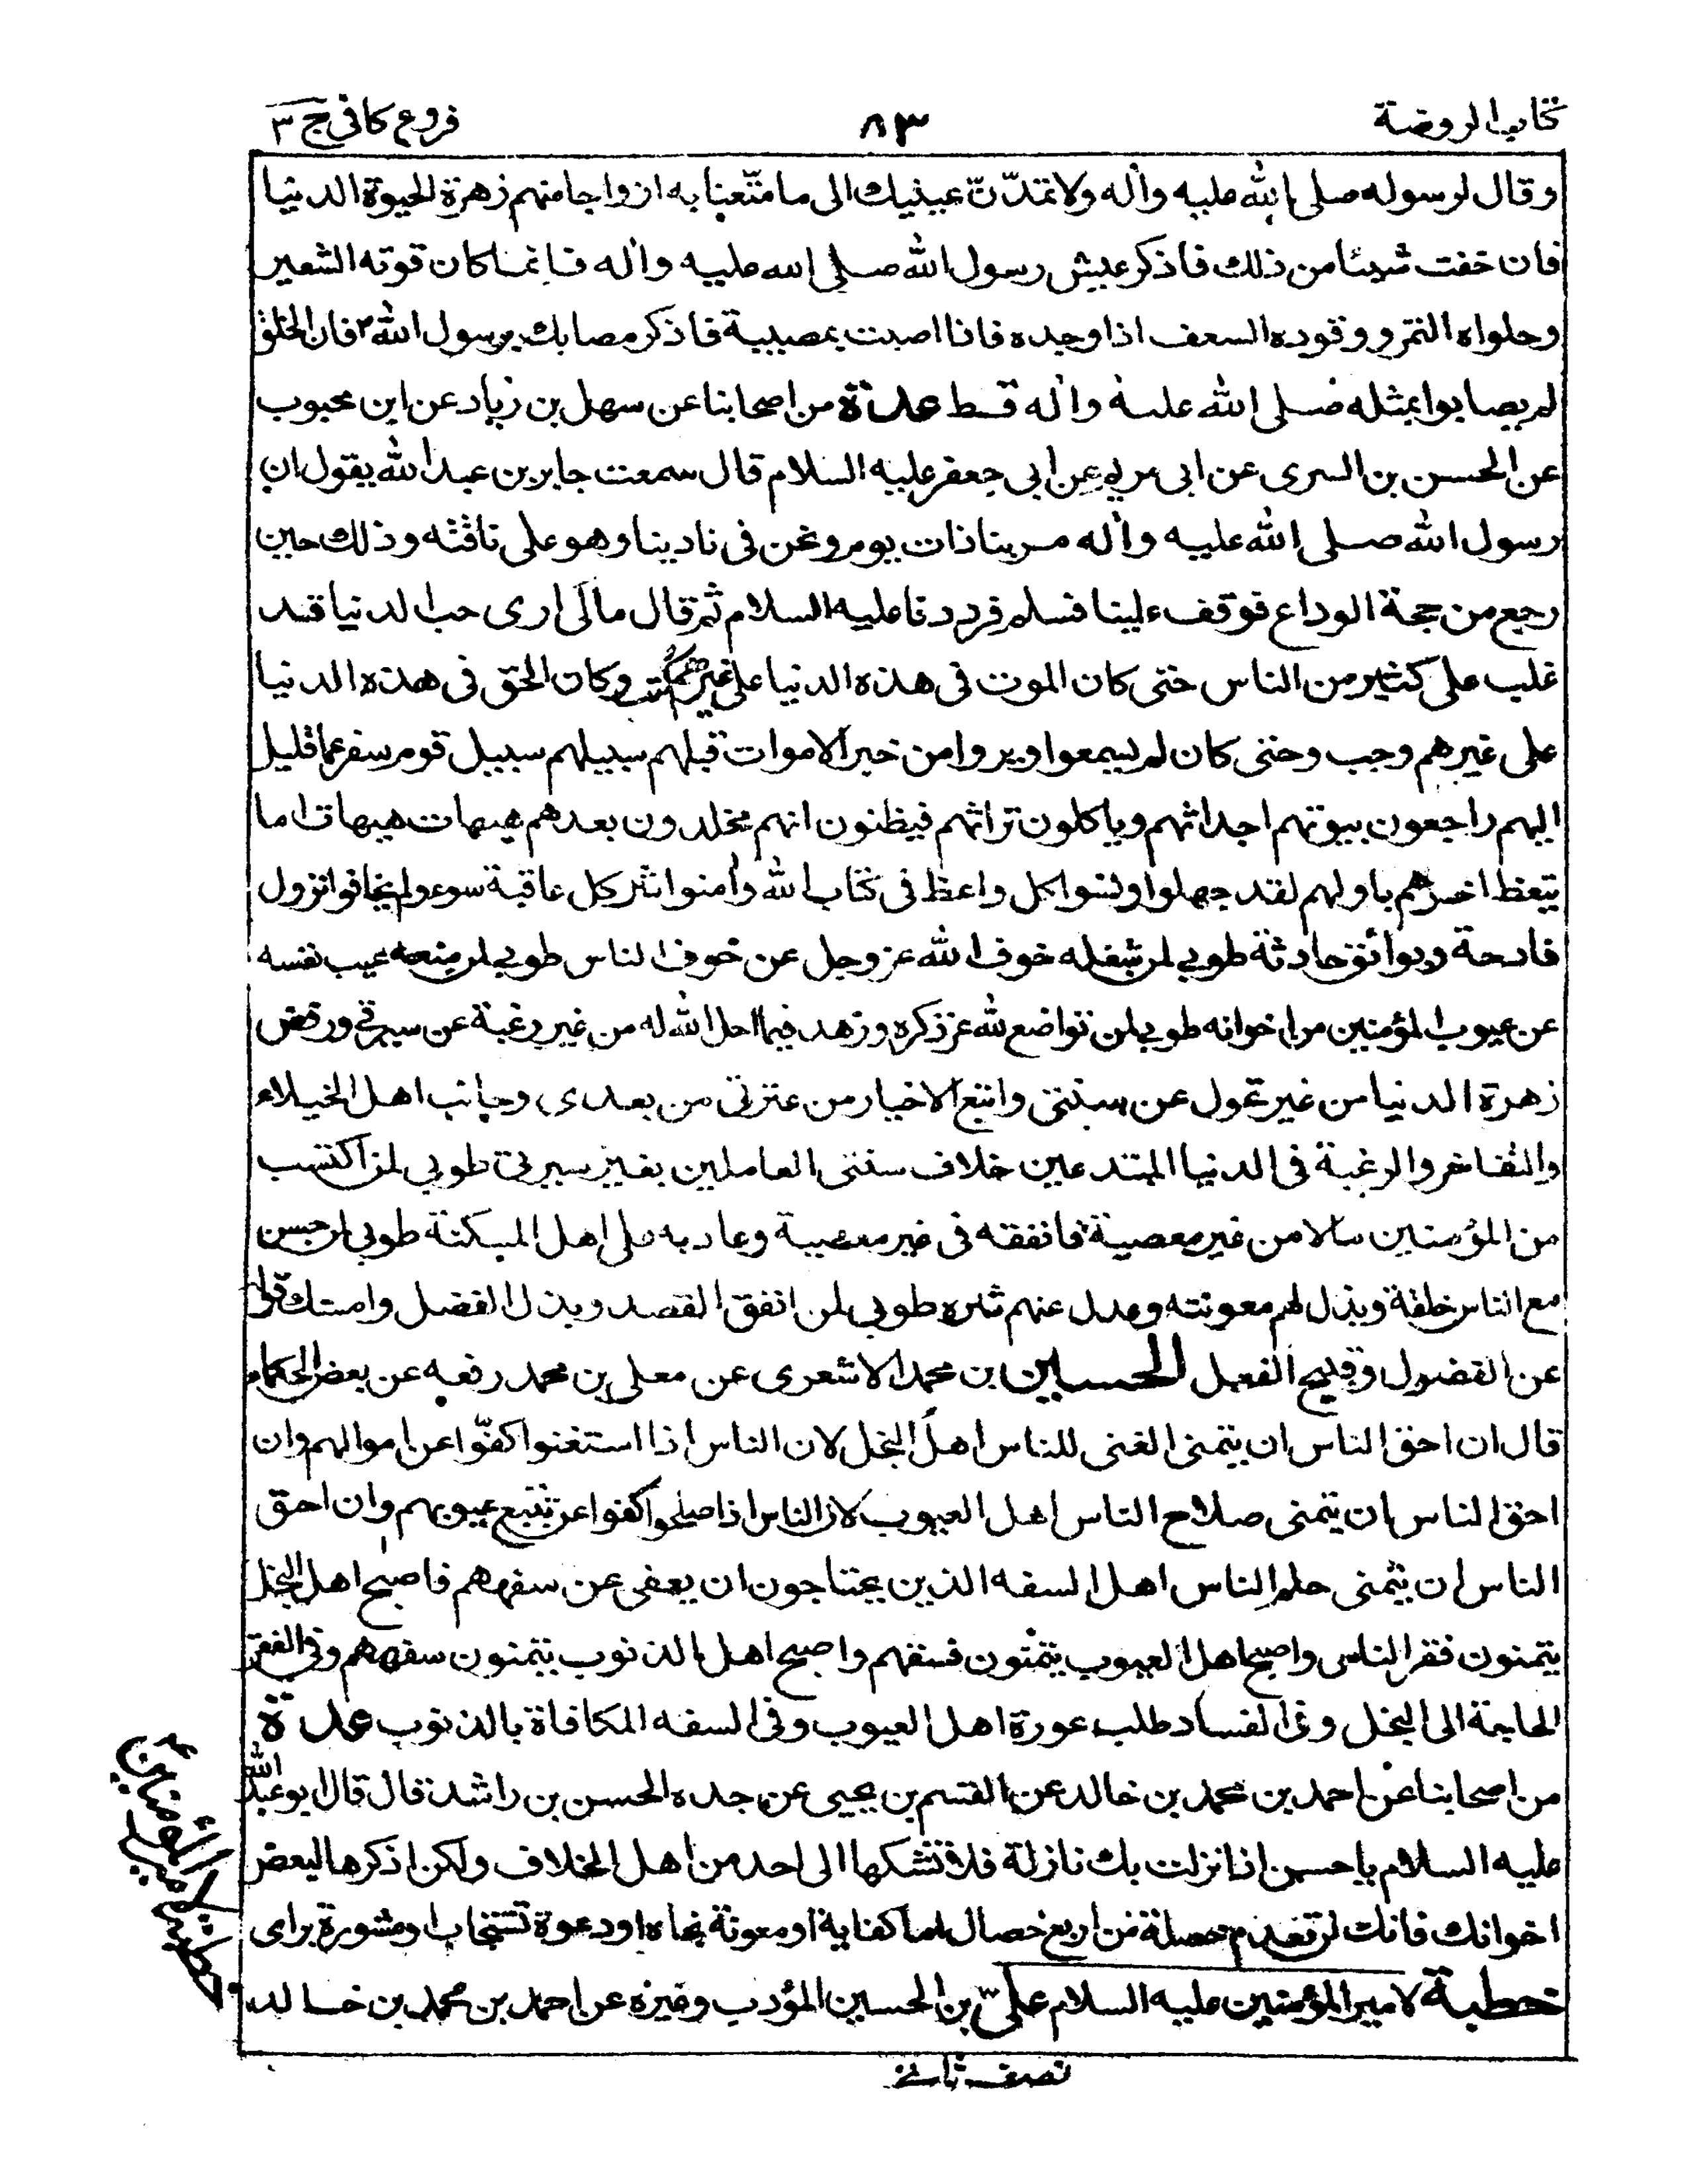 كتاب الروضة
٨٣
فروع كافى ج ٣
وقال لرسوله صلى الله عليه وآله ولا تمدّنّ عينيك الى ما متّعنا به ازواجا منهم زهرة الحيوة الدنيا
فان خفت شيئا من ذلك فاذكر عيش رسول الله صلى الله عليه وآله فانما كان قوته الشعير
وحلواه التمر ووقوده السعف اذا وجده فاذا اصبت بمصيبة فاذكر مصابك برسول الله ص فان الخلق
لم يصابوا بمثله صلى الله عليه وآله قط عدة من اصحابنا عن سهل بن زياد عن ابن محبوب
عن الحسن بن السرى عن ابى مريم عن ابى جعفر عليه السلام قال سمعت جابر بن عبد الله يقول ان
رسول الله صلى الله عليه وآله مر بنا ذات يوم ونحن فى نادينا وهو على ناقته وذلك حين
رجع من حجة الوداع فوقف علينا فسلم فرددنا عليه السلام ثم قال مالى ارى حب الدنيا قد
غلب على كثير من الناس حتى كان الموت فى هذه الدنيا على غيرهم كتب وكان الحق فى هذه الدنيا
على غيرهم وجب وحتى كان لم يسمعوا ويروا من خبر الاموات قبلهم سبيلهم سبيل قوم سفر عما قليل
اليهم راجعون بيوتهم اجداثهم وياكلون تراثهم فيظنون انهم مخلدون بعدهم هيهات هيهات اما
يتعظ اخرهم باولهم لقد جهلوا ونسوا كل واعظ فى كتاب الله وآمنوا شر كل عاقبة سوء ولم يخافوا نزول
فادحة وبوائق حادثة طوبى لمن شغله خوف الله عز وجل عن خوف الناس طوبى لمن منعه عيب نفسه
عن عيوب المؤمنين من اخوانه طوبى لمن تواضع لله عز ذكره وزهد فيما احل الله له من غير رغبة عن سيرتى ورفض
زهرة الدنيا من غير تحول عن سنتى واتبع الاخيار من عترتى من بعدى وجانب اهل الخيلاء
والتفاخر والرغبة فى الدنيا المبتدعين خلاف سنتى العاملين بغير سيرتى طوبى لمن اكتسب
من المؤمنين مالا من غير معصية فانفقه فى غير معصية وعاد به على اهل المسكنة طوبى لمن حسن
مع الناس خلقه وبذل لهم معونته وعدل عنهم شره طوبى لمن انفق القصد وبذل الفضل وامسك قوله
عن الفضول وقبيح الفعل الحسين بن محمد الاشعرى عن معلى بن محمد رفعه عن بعض الحكماء
قال ان احق الناس ان يتمنى الغنى للناس اهل البخل لان الناس اذا استغنوا كفّوا عن اموالهم وان
احق الناس ان يتمنى صلاح الناس اهل العيوب لان الناس اذا صلحوا كفوا عن تتبع عيوبهم وان احق
الناس ان يتمنى حلم الناس اهل السفه الذين يحتاجون ان يعفى عن سفههم فاصبح اهل البخل
يتمنون فقر الناس واصبح اهل العيوب يتمنون فسقهم واصبح اهل الذنوب يتمنون سفههم وفى الفقر
الحاجة الى البخل وفى الفساد طلب عورة اهل العيوب وفى السفه المكافاة بالذنوب عدة
من اصحابنا عن احمد بن محمد بن خالد عن القسم بن يحيى عن جده الحسن بن راشد قال قال ابو عبد الله
عليه السلام يا حسن اذا نزلت بك نازلة فلا تشكها الى احد من اهل الخلاف ولكن اذكرها لبعض
اخوانك فانك لن تعدم خصلة من اربع خصال اما كفاية او معونة بجاه او دعوة تستجاب او مشورة براى
خطبة لامير المؤمنين عليه السلام علىّ بن الحسين المؤدب وغيره عن احمد بن محمد بن خالد
خطبة امير المؤمنين ع
نصف ثانى